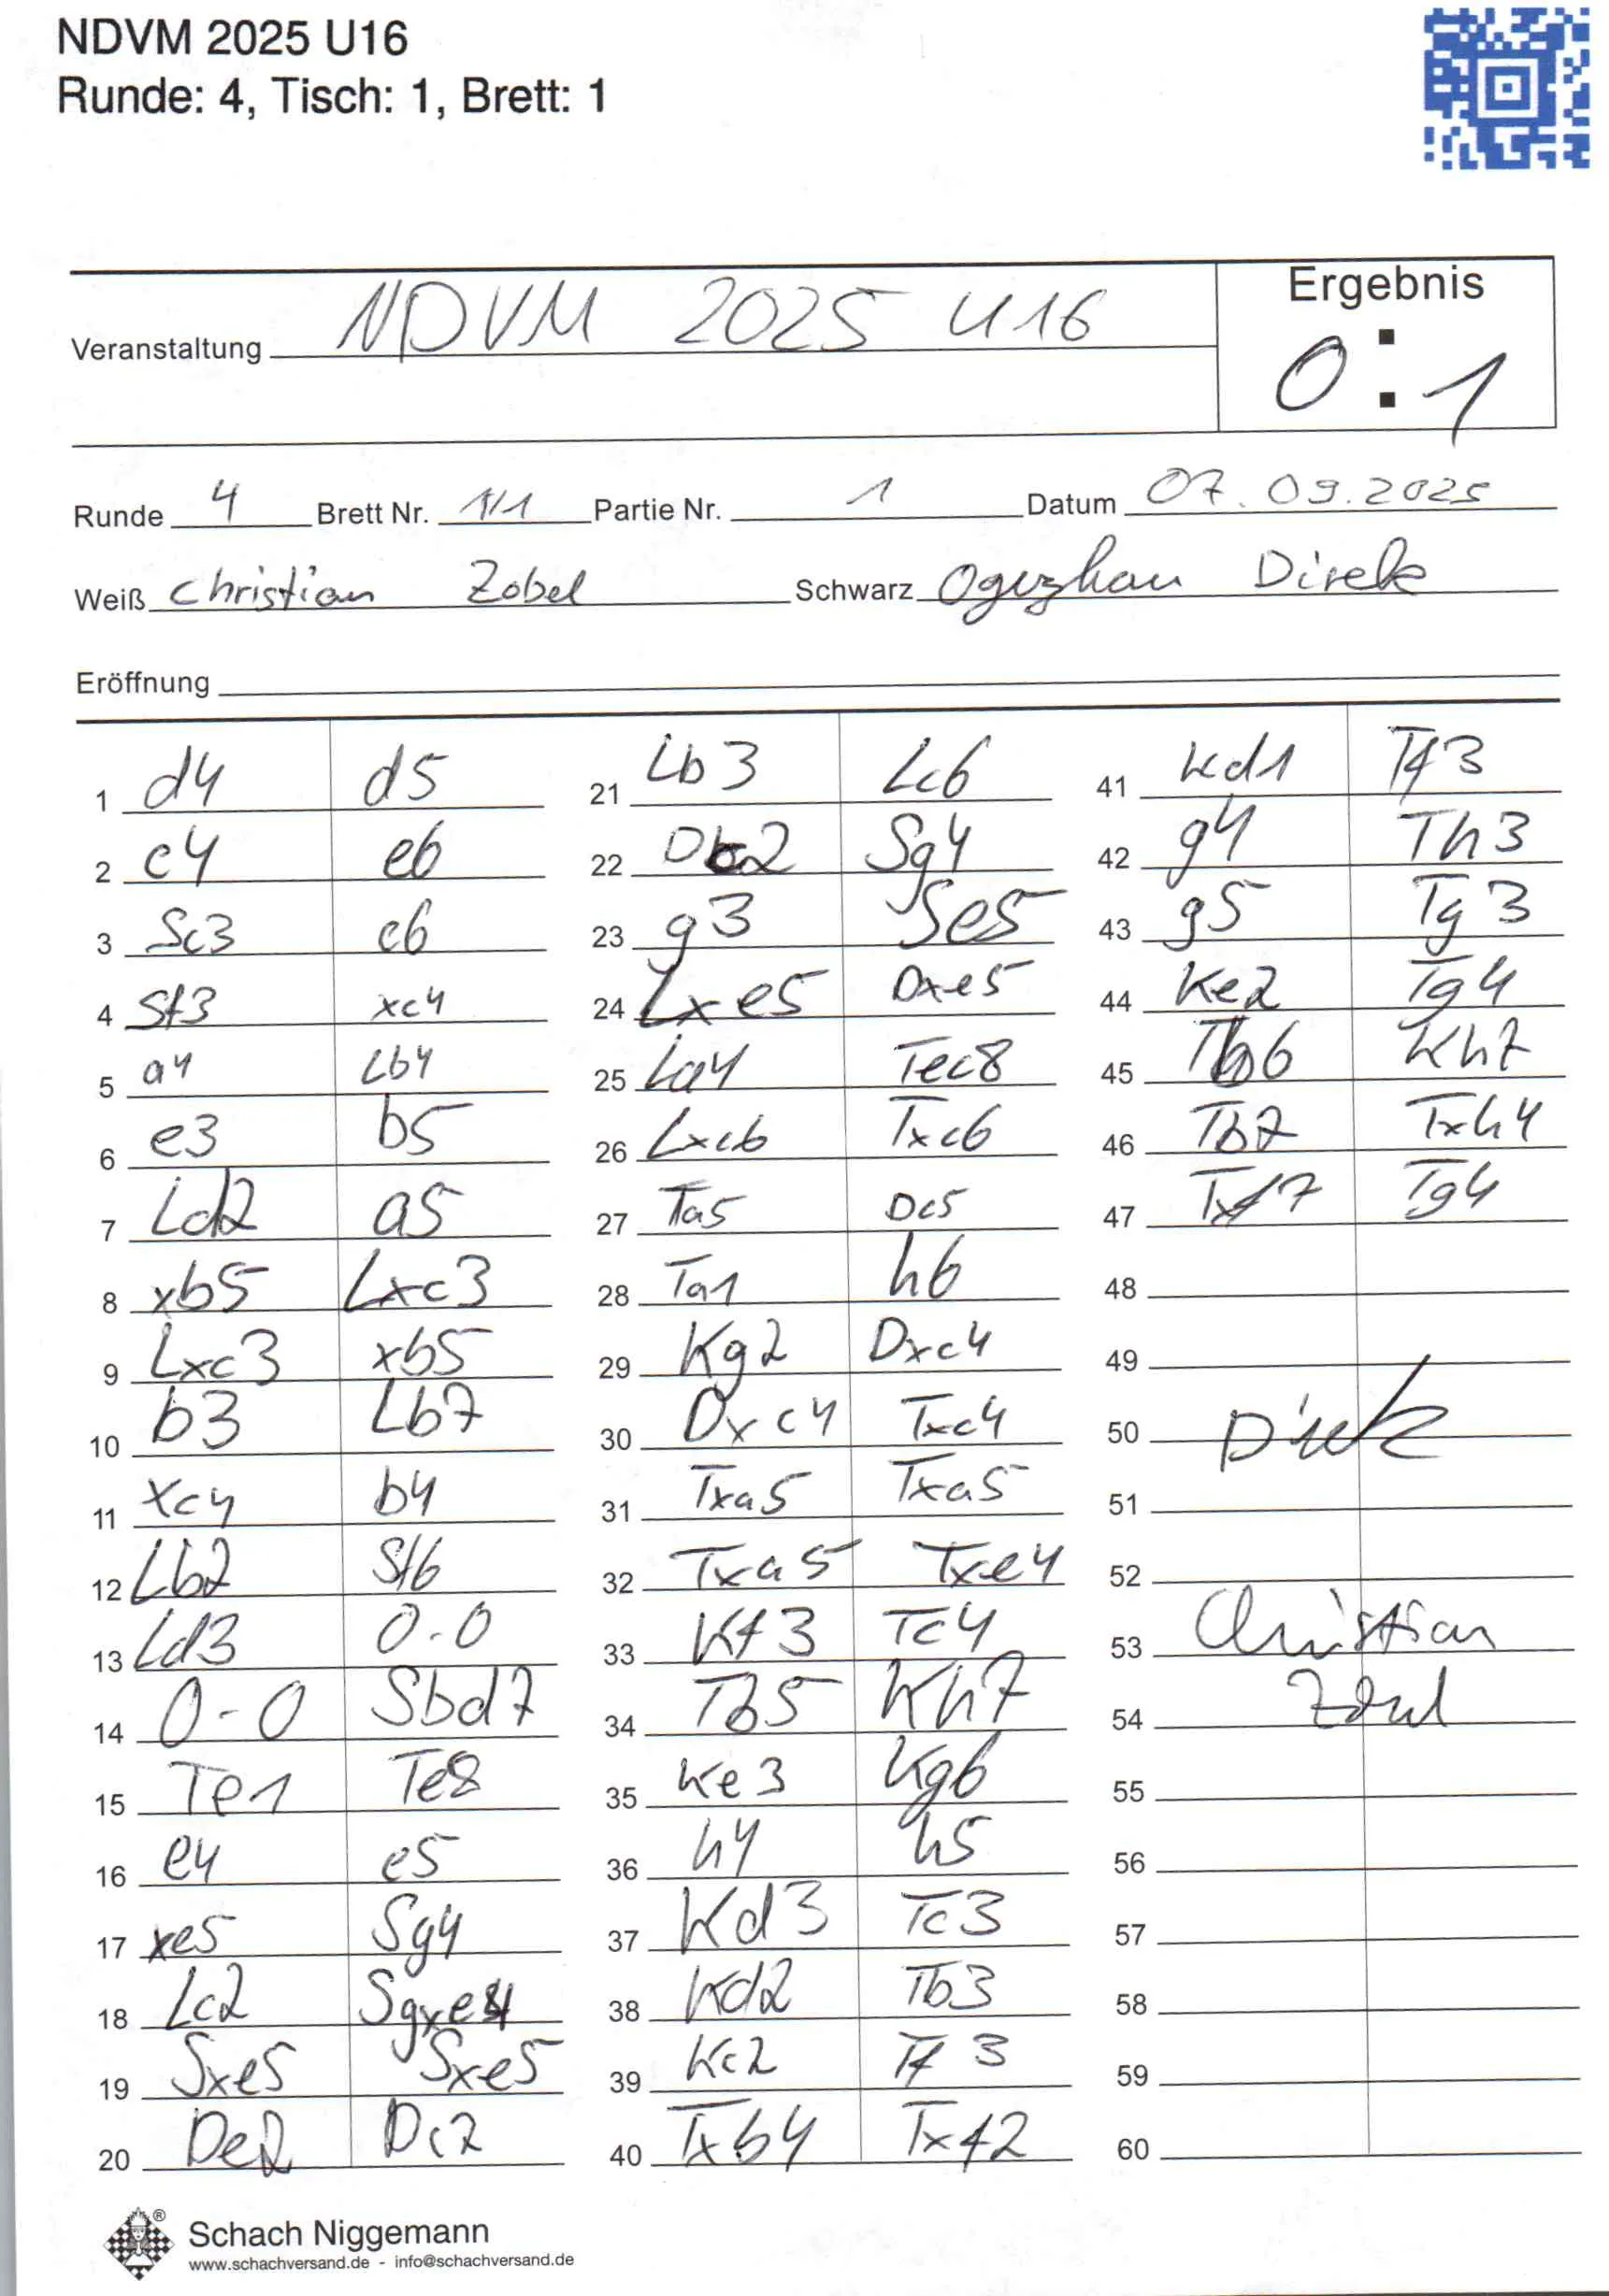 NDVM 2025 U16
Runde: 4, Tisch: 1, Brett: 1
Ergebnis
Veranstaltung NDVM 2025 U16
0 : 1
Runde 4 Brett Nr. 1/1 Partie Nr. 1 Datum 07.09.2025
Weiß Christian Zobel Schwarz Oguzhan Direk
Eröffnung
1 d4 d5
2 c4 e6
3 Sc3 c6
4 Sf3 xc4
5 a4 Lb4
6 e3 b5
7 Ld2 a5
8 xb5 Lxc3
9 Lxc3 xb5
10 b3 Lb7
11 xc4 b4
12 Lb2 Sf6
13 Ld3 0-0
14 0-0 Sbd7
15 Te1 Te8
16 e4 e5
17 xe5 Sg4
18 Lc2 Sgxe4
19 Sxe5 Sxe5
20 De2 Dc7
21 Lb3 Lc6
22 Dc2 Sg4
23 g3 Se5
24 Lxe5 Dxe5
25 La4 Tec8
26 Lxc6 Txc6
27 Ta5 Dc5
28 Ta1 h6
29 Kg2 Dxc4
30 Dxc4 Txc4
31 Txa5 Txa5
32 Txa5 Txe4
33 Kf3 Tc4
34 Tb5 Kh7
35 Ke3 Kg6
36 h4 h5
37 Kd3 Tc3
38 Kd2 Tb3
39 Kc2 Tf3
40 Txb4 Txf2
41 Kd1 Tf3
42 g4 Th3
43 g5 Tg3
44 Ke2 Tg4
45 Tb6 Kh7
46 Tb7 Txh4
47 Txf7 Tg4
48
49
50 Direk
51
52
53 Christian
54 Zobel
55
56
57
58
59
60
Schach Niggemann
www.schachversand.de - info@schachversand.de